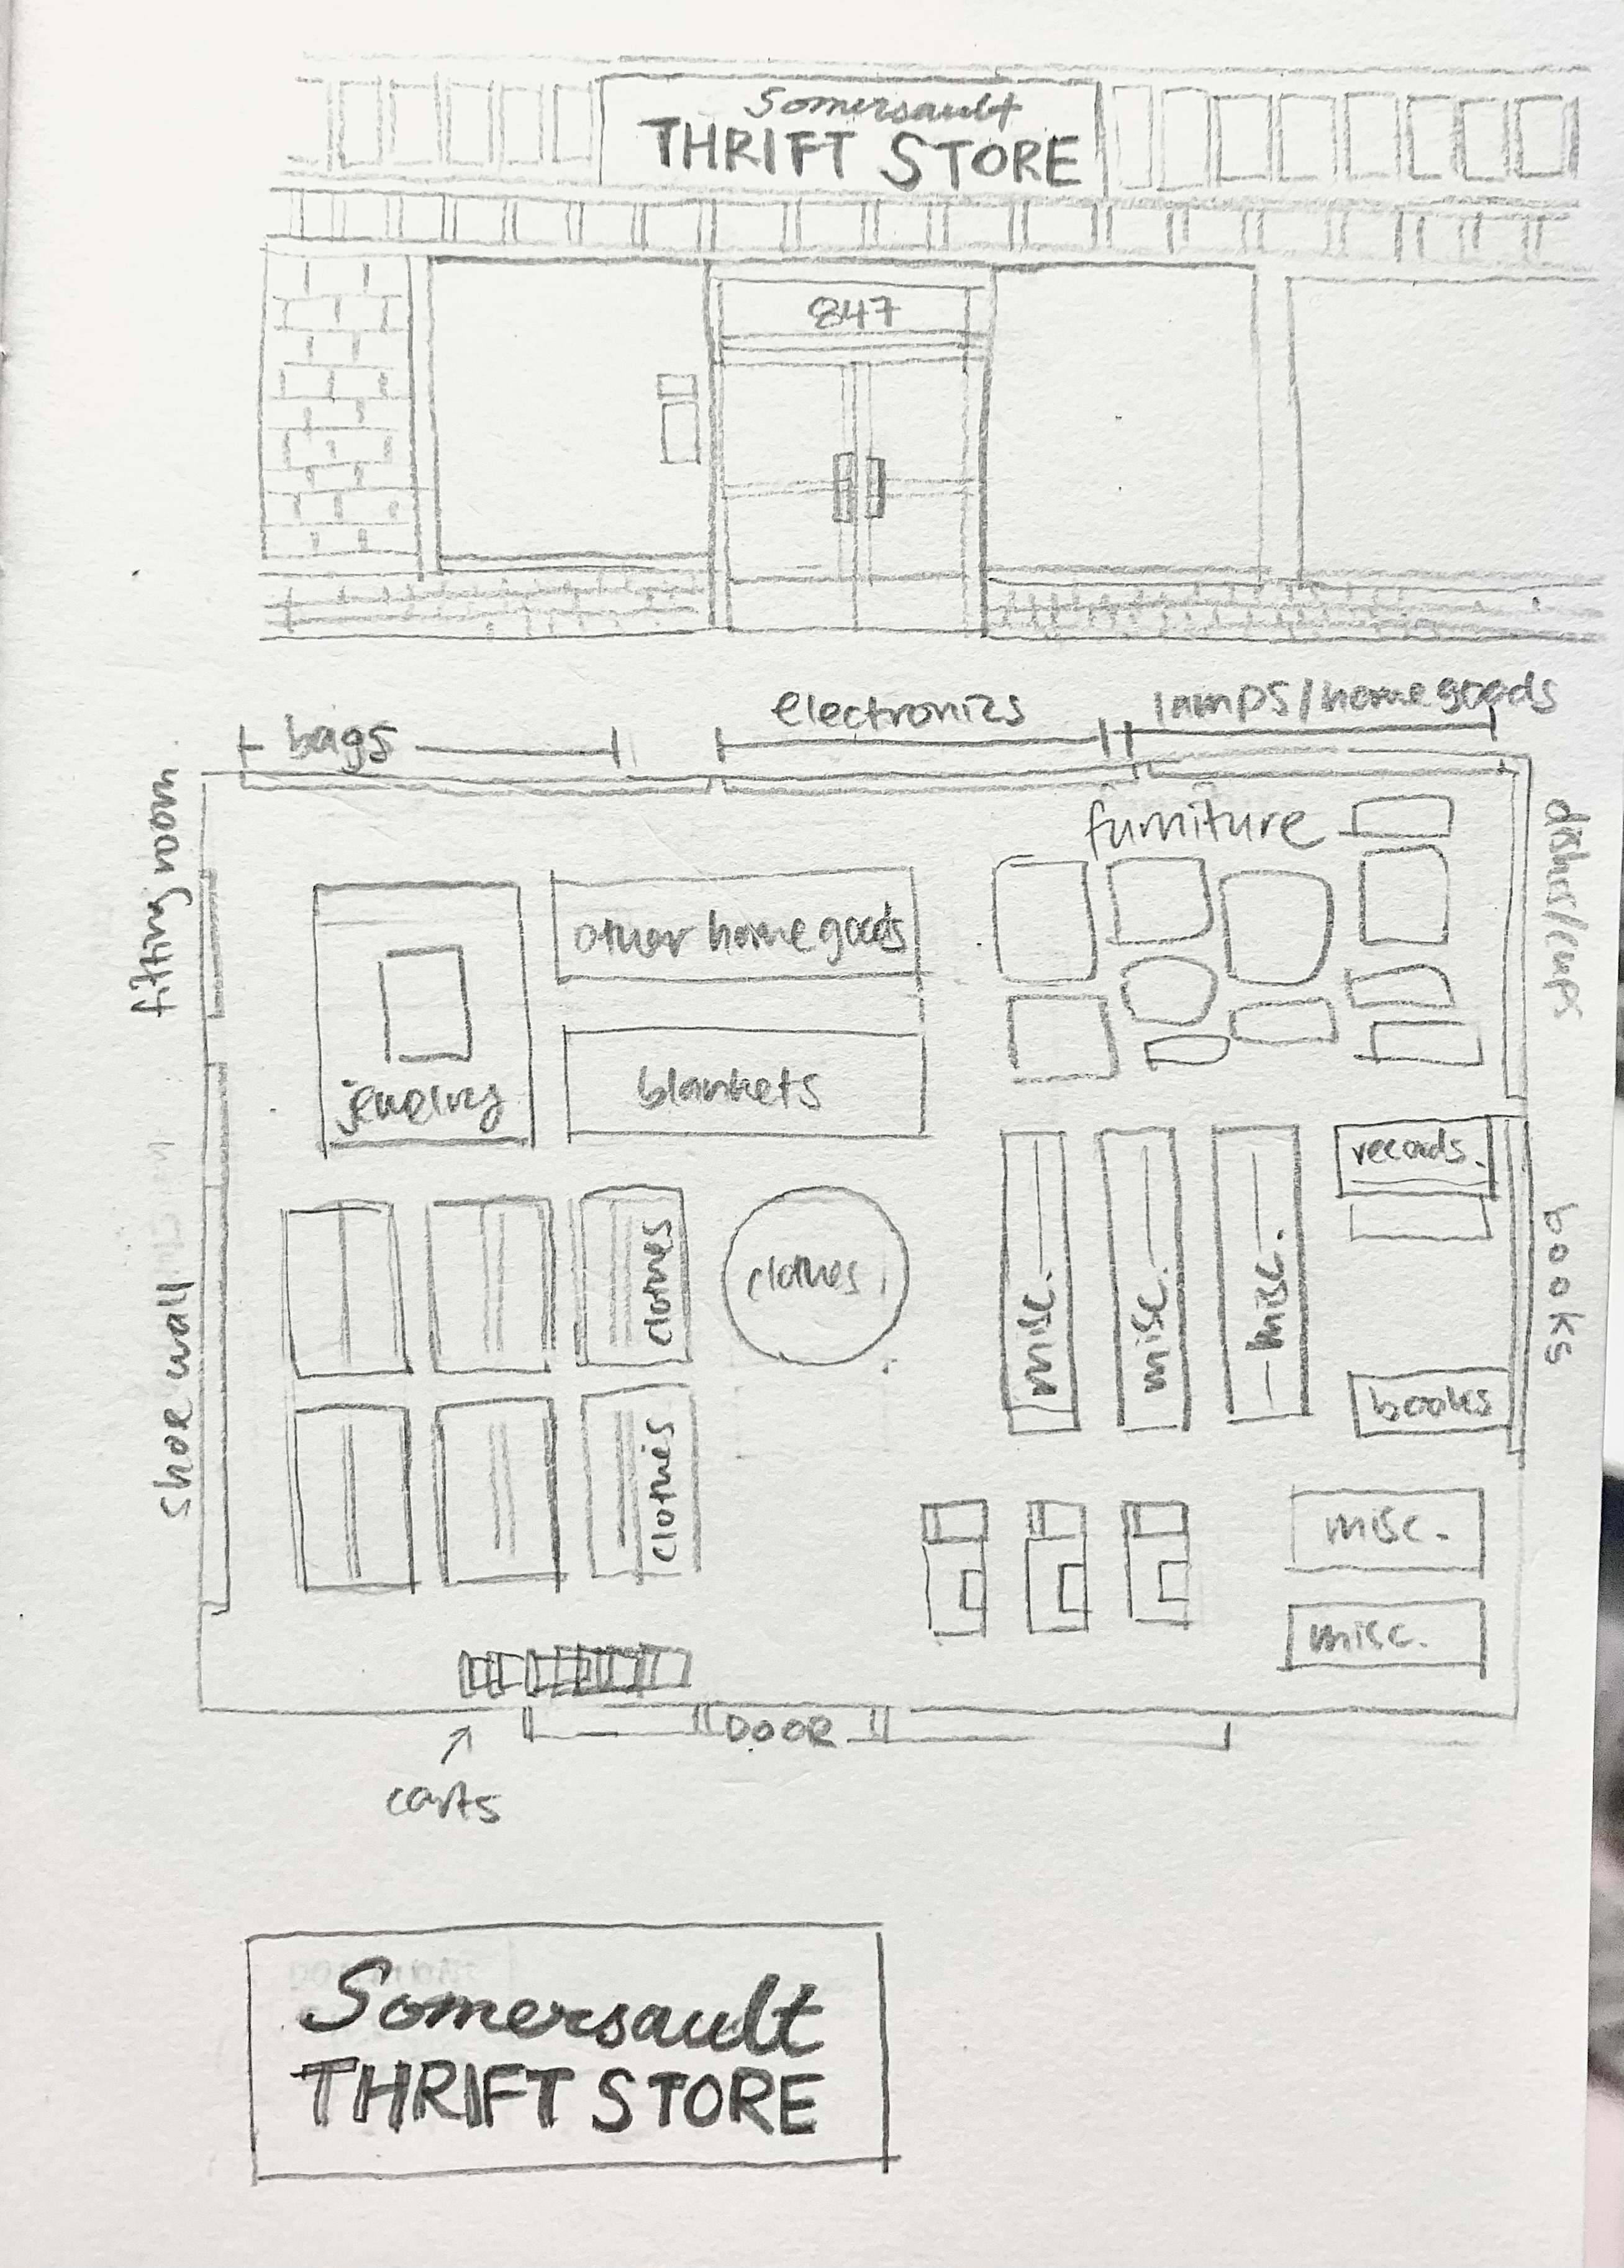 Somersault
THRIFT STORE
847
bags
electronics
lamps/home goods
fitting room
furniture
dishes/cups
other home goods
jewelry
blankets
records.
shoe wall
clothes
clothes
misc.
misc.
misc.
books
clothes
books
misc.
misc.
DOOR
carts
Somersault
THRIFT STORE